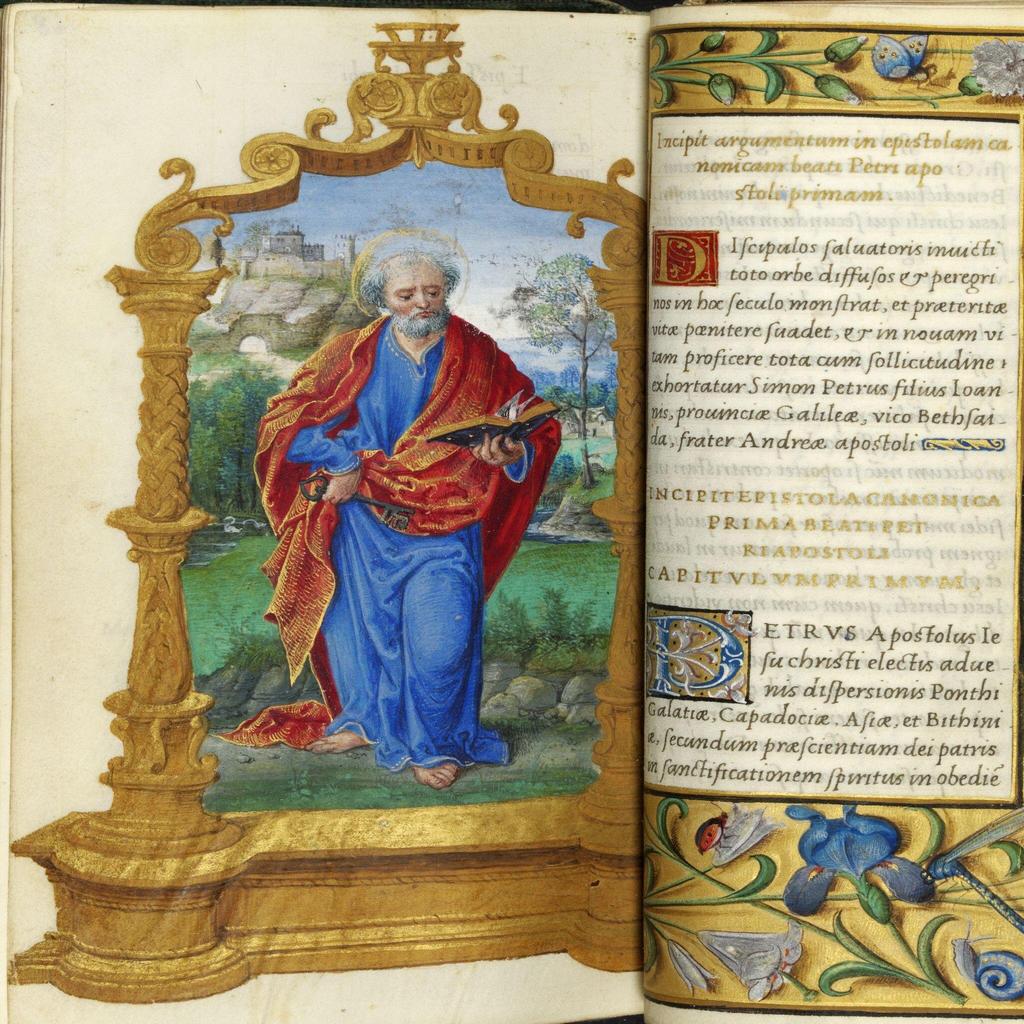 Incipit argumentum in epistolam ca
nonicam beati Petri apo
stoli primam.
DIscipulos saluatoris inuicti
toto orbe diffusos & peregri
nos in hoc seculo monstrat, et præteritæ
vitæ pœnitere suadet, & in nouam vi
tam proficere tota cum sollicitudine
exhortatur Simon Petrus filius Ioan-
nis, prouinciæ Galileæ, vico Bethsai-
da, frater Andreæ apostoli
INCIPIT EPISTOLA CANONICA
PRIMA BEATI PET
RI APOSTOLI
CAPITVLVM PRIMVM
PETRVS Apostolus Ie
su christi electis adue
nis dispersionis Ponthi
Galatiæ, Capadociæ, Asiæ, et Bithini
æ, secundum præscientiam dei patris
in sanctificationem spiritus in obediē